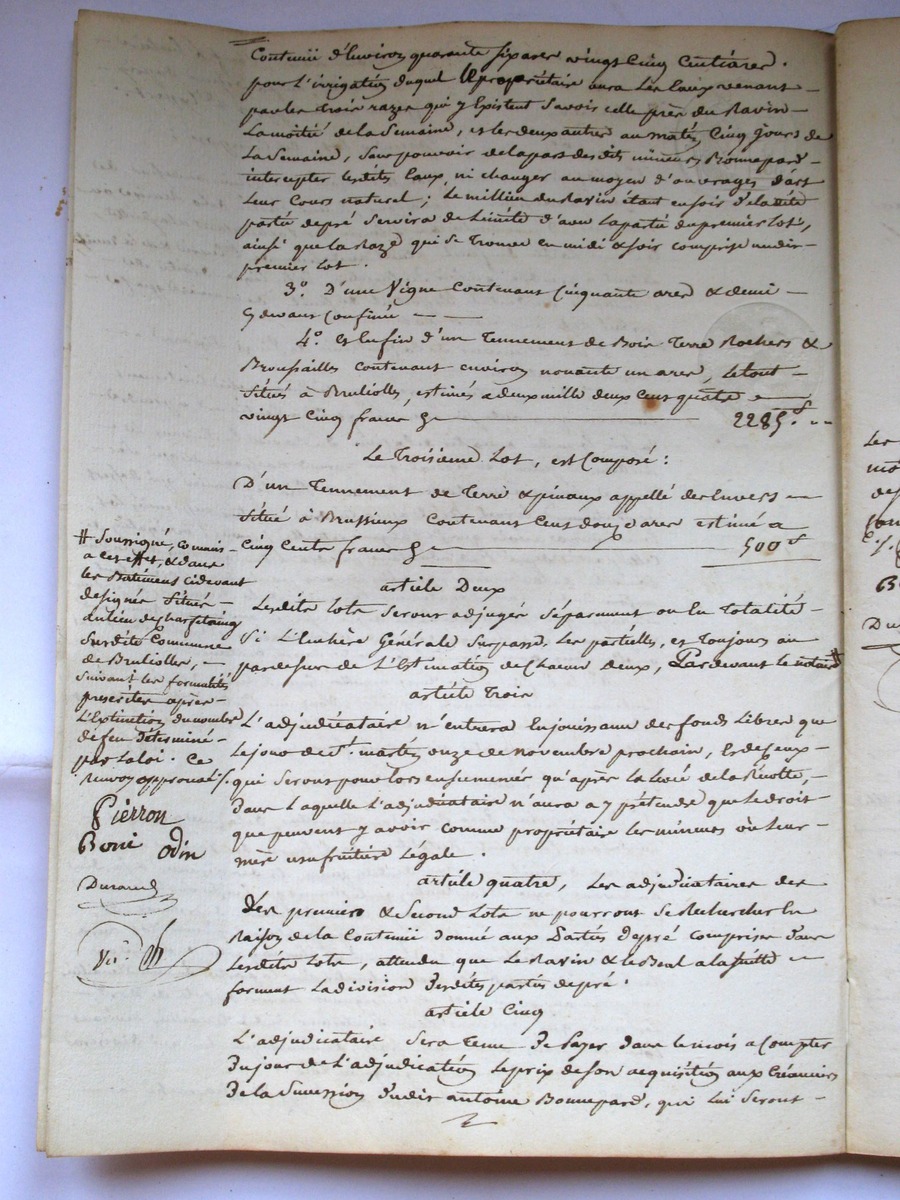 Contenüe d'Environ quarante six ares vingt Cinq Centiares.
pour l'irrigation duquel le propriétaire aura Les Eaux venant
par les trois razes qui y Existent Savoir celle près du Ravin
La moitié de la Semaine, et les deux autres au matin Cinq Jours de
La Semaine, Sans pouvoir de la part des dits mineurs Bonnepard
intercepter les dits Eaux, ni changer au moyen d'ouvrages d'art
Leur Cours naturel; Le millieu du Ravin étant en soir de la dite
partie de pré Servira de Limite d'avec La partie du premier Lot,
ainsi que la Raze qui se trouve en midi & soir comprise au dit
premier Lot.
3°. D'une Vigne Contenant Cinquante ares & demi
Cy devant Confinée
4°. Et Enfin d'un Tennement de Bois Terre Rochers &
Broussailles Contenant environ nonante un ares, Le tout
Situés à Brullioles, estimés a deux mille deux Cent quatre
vingt Cinq francs 2285.f
Le Troisieme Lot, est Composé:
D'un Tennement de Terre & pinaux appellé des Envers
Situé à Brussieux Contenant Cent douze ares estimé a
Cinq Cents francs 500 f
article Deux
Lesdits Lots Seront adjugés Séparment ou En Totalité
Si L'Enchère Générale Surpasse Les partielles, et Toujours au
par dessus de L'Estimation de Chacun d'eux, Pardevant le notaire #
article Trois
L'adjudicataire n'entrera En jouissance des fonds Libres que
Le jour de St. martin onze de novembre prochain, & de Ceux
qui Seront pour lors ensemencés qu'après la Levée de la Récolte,
dans Laquelle L'adjudicataire n'aura a y prétendre que Le droit
que peuvent y avoir comme propriétaire les mineurs ou Leur
mère usufruitière Légale.
article quatre, Les adjudicataires des
Des premiers & Second Lots ne pourront Se Rechercher En
Raison de la Contenüe donné aux Parties de pré Comprises dans
Lesdits Lots, attendu que Le Ravin & le Beal a la suitte
forment La division desdites parties de pré.
article Cinq
L'adjudicataire Sera Tenu de Payer dans le mois a Compter
du jour de L'adjudication Le prix de son acquisition aux Créanciers
de la Succession dudit antoine Bonnepard, qui Lui Seront
# Soussigné, Commis
a cet effet, & dans
les Batimens cidevant
designés Situés
au lieu de
Susdite Commune
de Brullioles,
suivant les formalités
prescrites après
L'Extinction du nombre
de feu déterminé
par la loi. Ce
renvoy approuvé ./.
Pierron
Boni odin
Durand